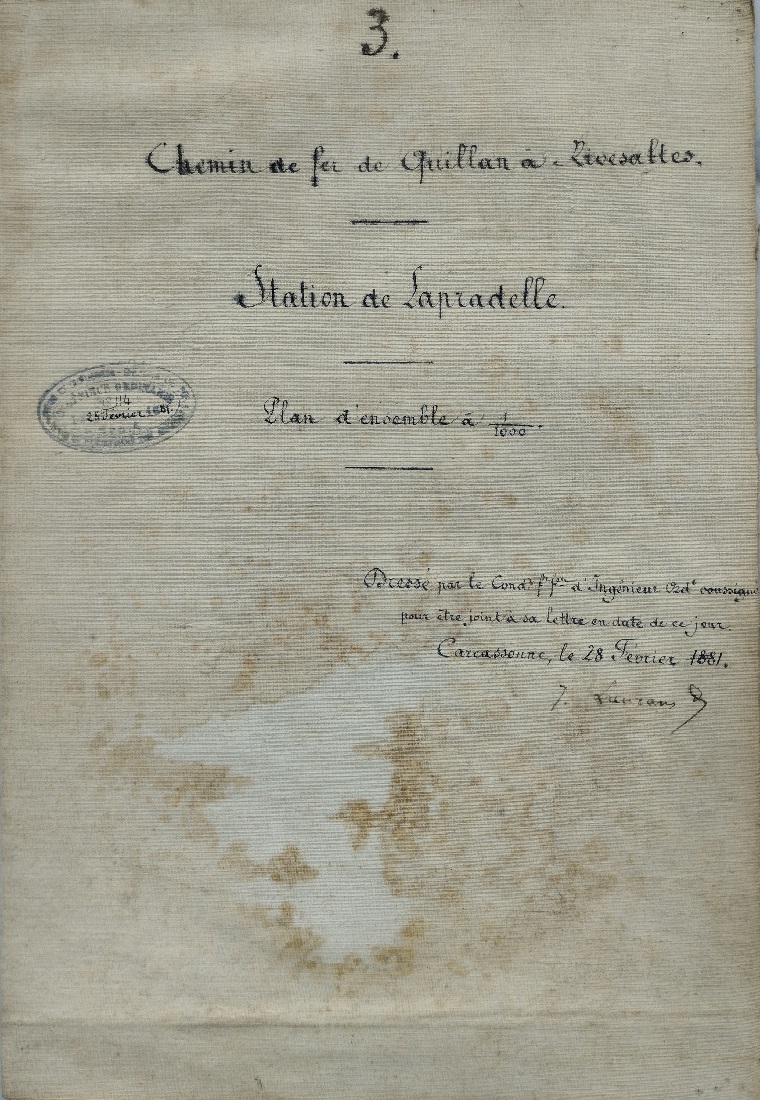 3.
Chemin de fer de Quillan à Rivesaltes.
Station de Lapradelle.
INGÉNIEUR ORDINAIRE
25 Février 1881.
Plan d'ensemble à 1/1000.
Dressé par le Cond.r f.f.on d'Ingénieur Ord.re soussigné
pour être joint à sa lettre en date de ce jour.
Carcassonne, le 28 Février 1881.